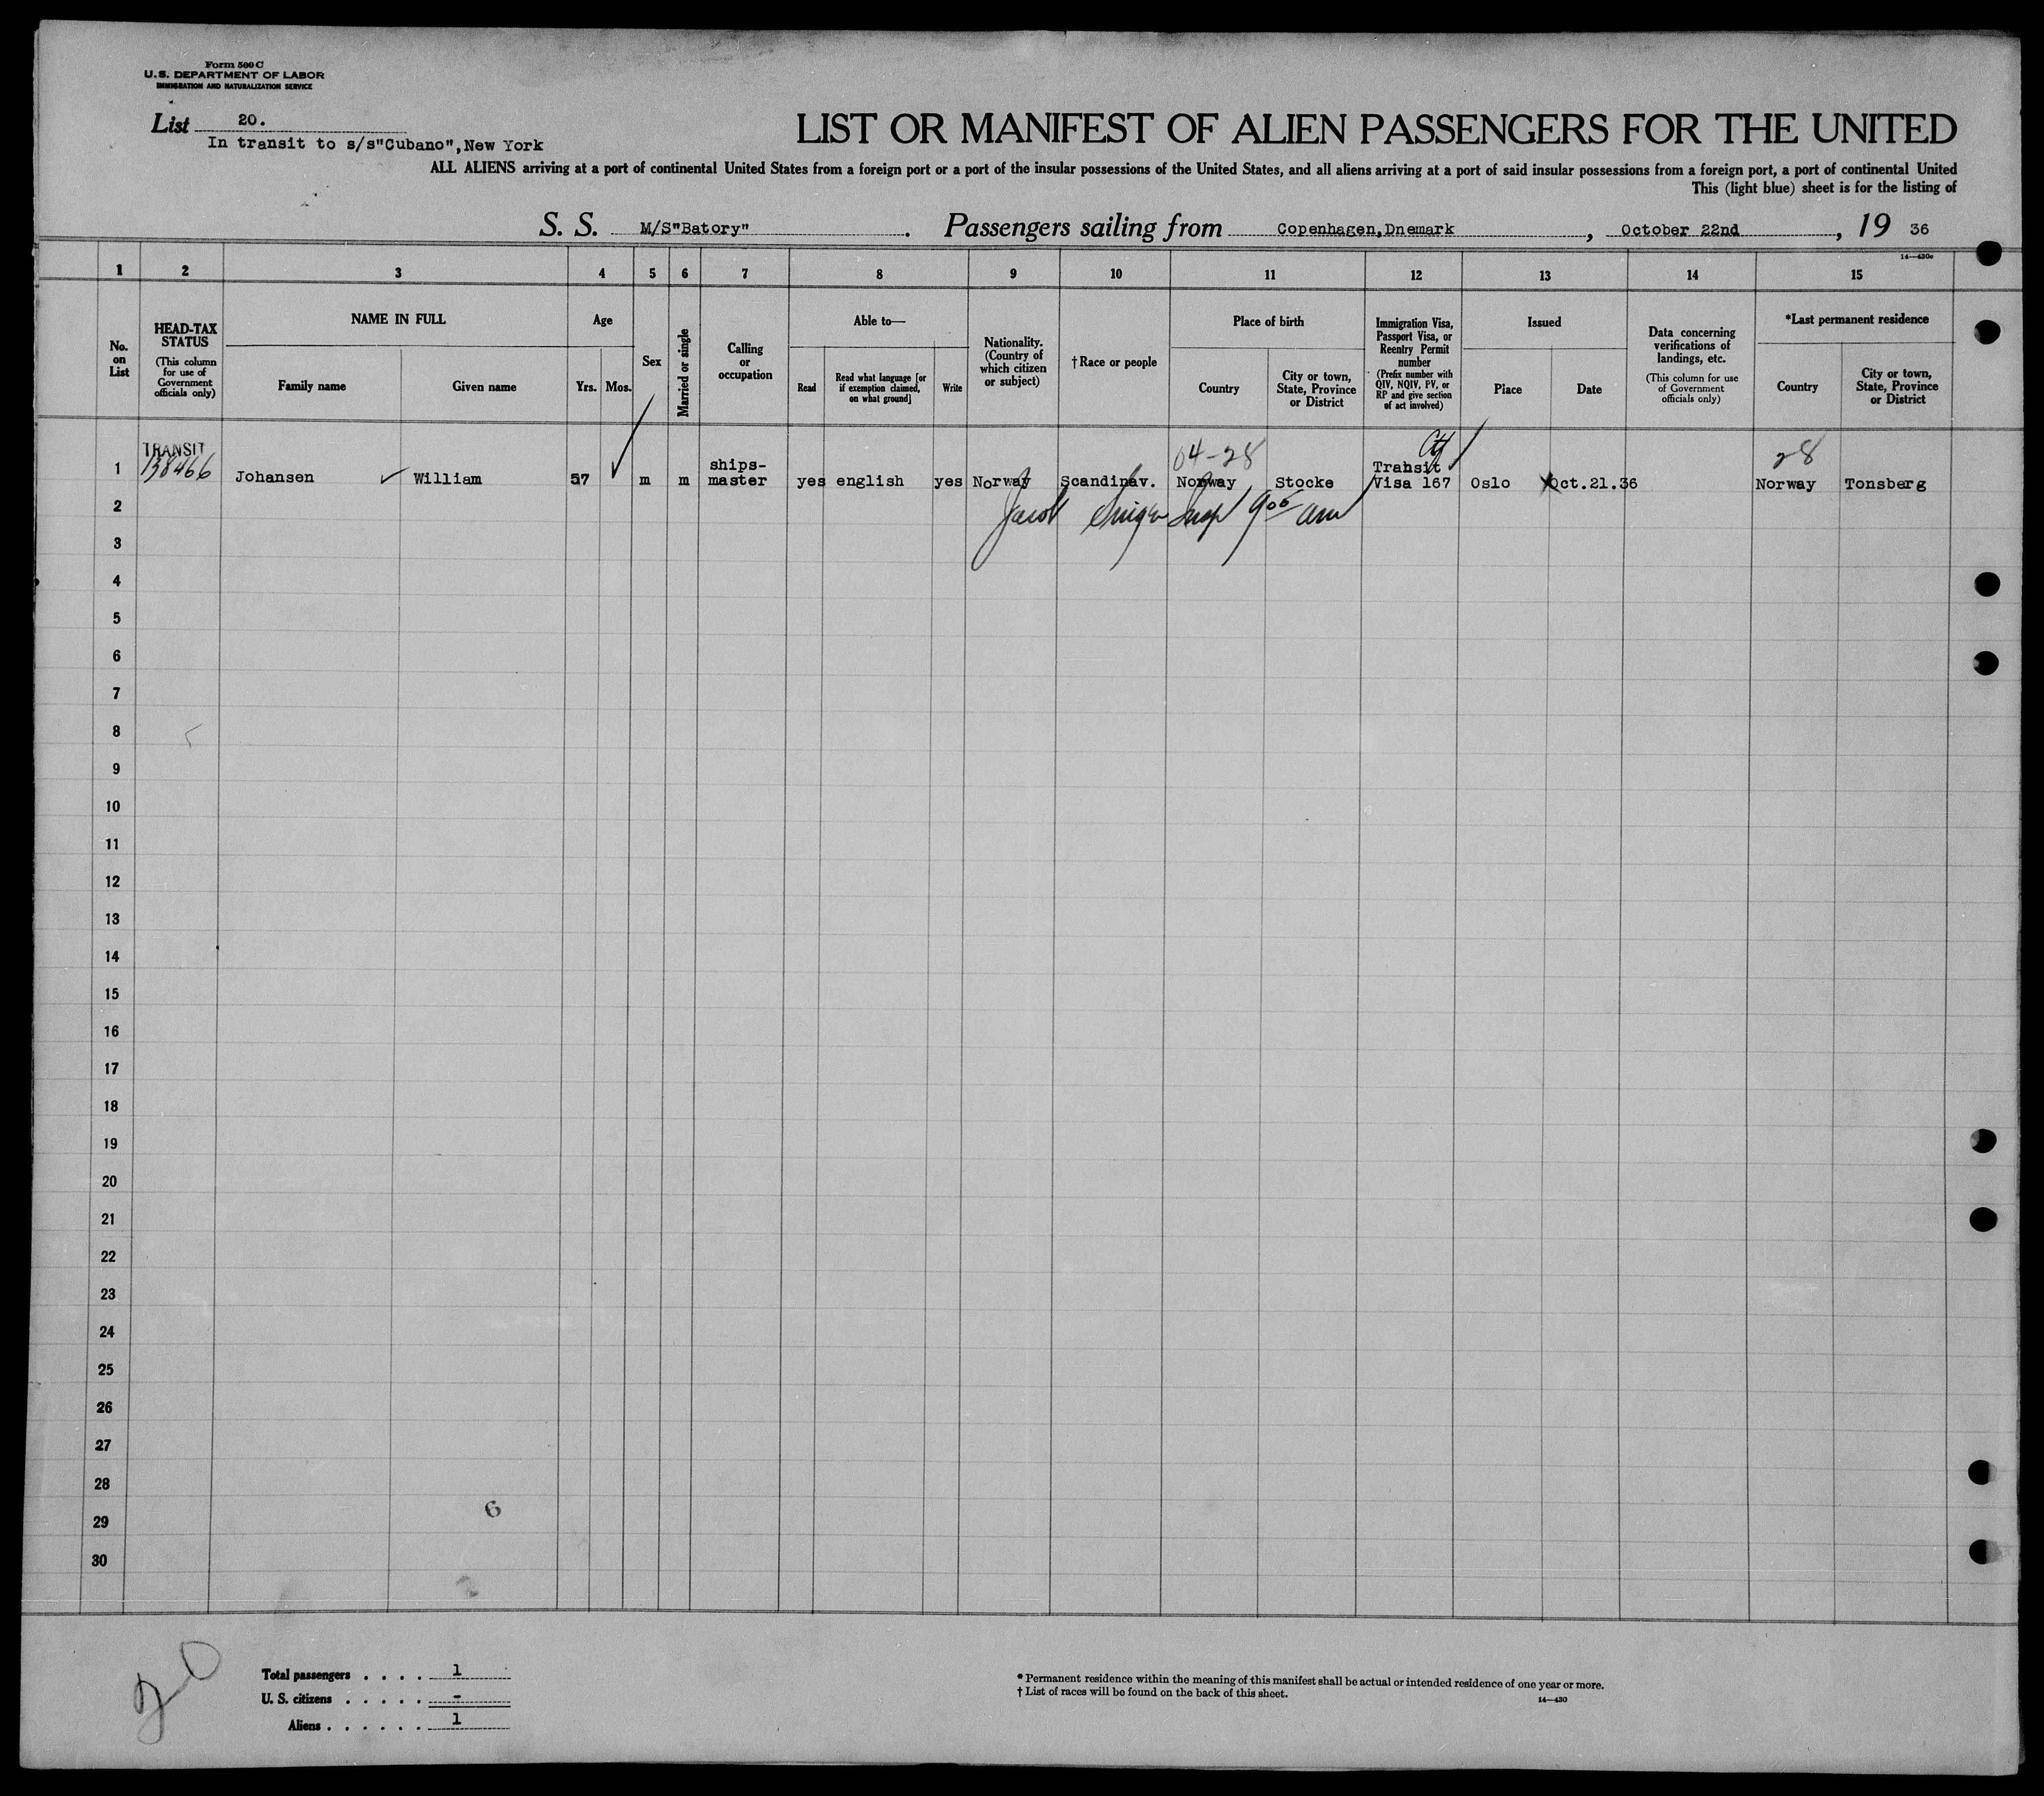 Form 500 C
U.S. DEPARTMENT OF LABOR
IMMIGRATION AND NATURALIZATION SERVICE
List 20.
In transit to s/s"Cubano",New York
LIST OR MANIFEST OF ALIEN PASSENGERS FOR THE UNITED
ALL ALIENS arriving at a port of continental United States from a foreign port or a port of the insular possessions of the United States, and all aliens arriving at a port of said insular possessions from a foreign port, a port of continental United
This (light blue) sheet is for the listing of
S. S. M/S"Batory" . Passengers sailing from Copenhagen,Dnemark , October 22nd , 19 36
14—430c
1 2 3 4 5 6 7 8 9 10 11 12 13 14 15
No. on List
HEAD-TAX STATUS
(This column for use of Government officials only)
NAME IN FULL
Family name
Given name
Age
Yrs.
Mos.
Sex
Married or single
Calling or occupation
Able to—
Read
Read what language [or if exemption claimed, on what ground]
Write
Nationality. (Country of which citizen or subject)
† Race or people
Place of birth
Country
City or town, State, Province or District
Immigration Visa, Passport Visa, or Reentry Permit number
(Prefix number with QIV, NQIV, PV, or RP and give section of act involved)
Issued
Place
Date
Data concerning verifications of landings, etc.
(This column for use of Government officials only)
*Last permanent residence
Country
City or town, State, Province or District
TRANSIT ships- 04-28 Transit 28
1 138466 Johansen William 57 m m master yes english yes Norway Scandinav. Norway Stocke Visa 167 Oslo Oct.21.36 Norway Tonsberg
2 Jacob Insp 9 05 am
3
4
5
6
7
8
9
10
11
12
13
14
15
16
17
18
19
20
21
22
23
24
25
26
27
28
6
29
30
20
Total passengers . . . . 1
U. S. citizens . . . . . -
Aliens . . . . . . 1
* Permanent residence within the meaning of this manifest shall be actual or intended residence of one year or more.
† List of races will be found on the back of this sheet.
14—430